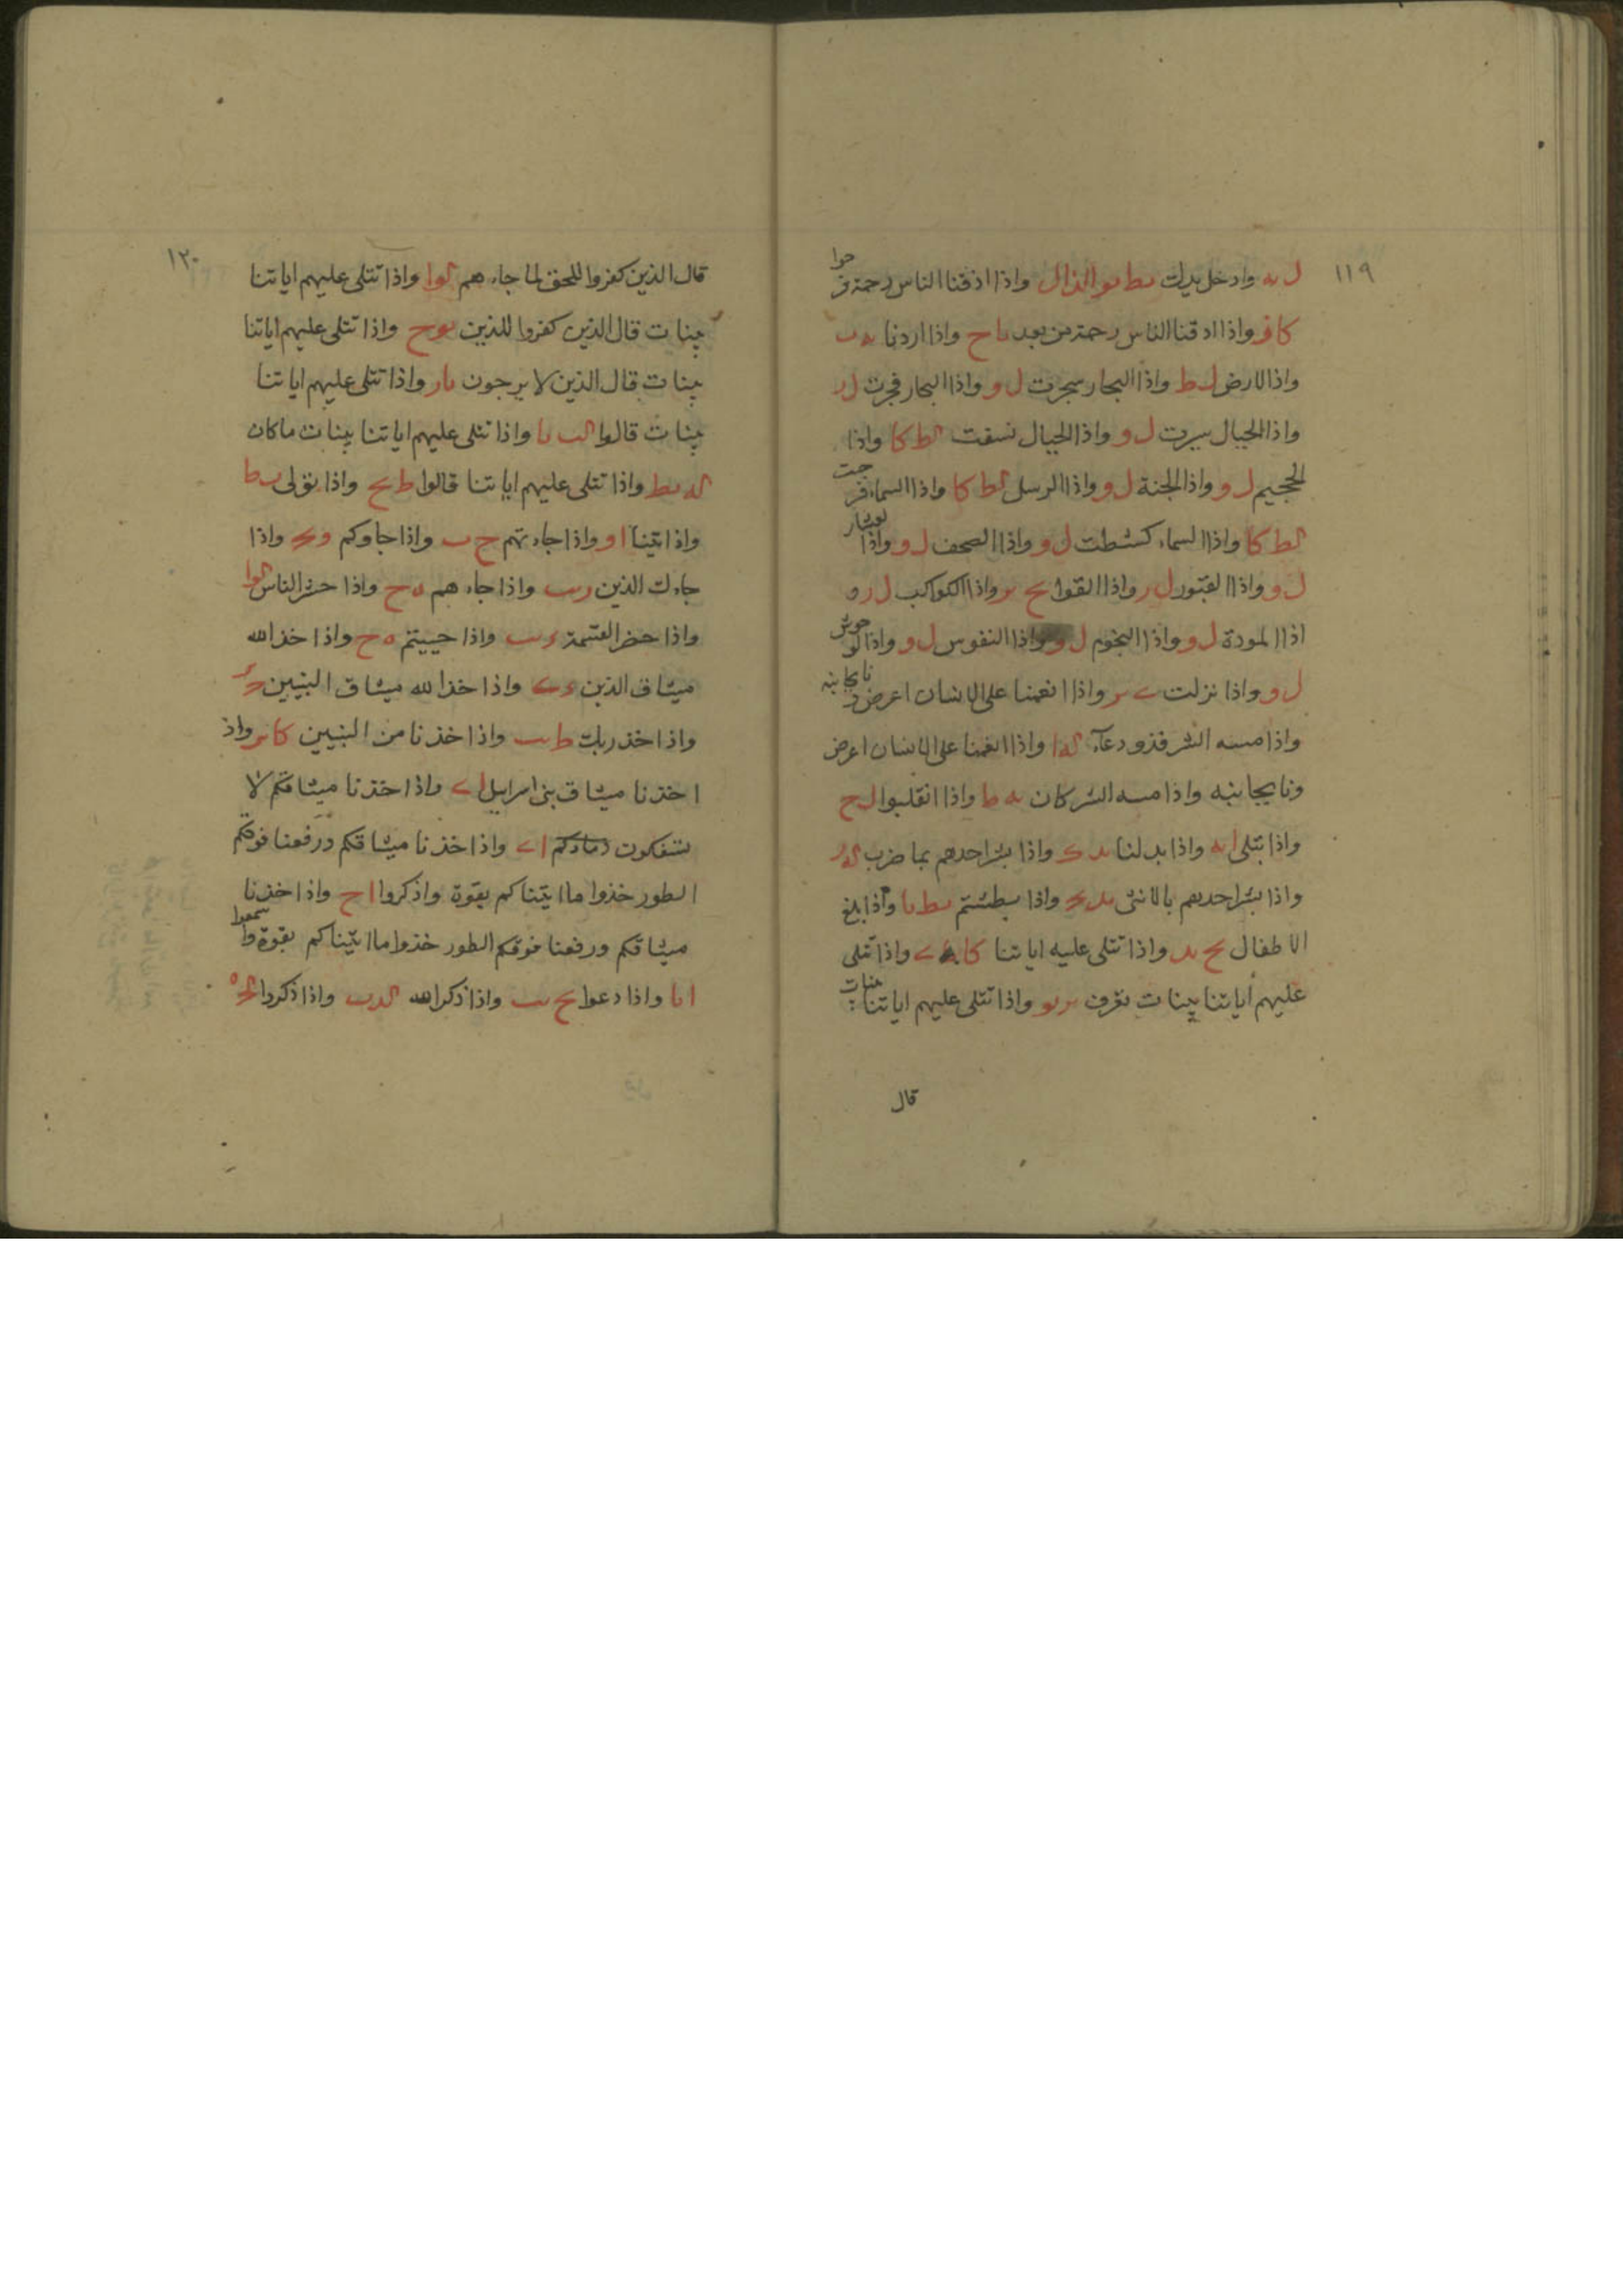 ١١٩
ل ىه وادخل يدك ىط ىو الذال واذا اذقنا الناس رحمة فرحوا
كا و واذا ادقنا الناس رحمة من بعد ىا ح واذا اردنا ىه ب
واذا الارض ل ط واذا البحار سجرت ل و واذا البحار فجرت ل ر
واذا الجبال سيرت ل و واذا الجبال نسفت لط كا واذا
الججيم ل و واذا الجنة ل و واذا الرسل لط كا واذا السماء فرجت
لط كا واذا السماء كشطت ل و واذا الصحف ل و واذا العشار
ل و واذا القبور ل ر واذا القوا ىح ىر واذا الكواكب ل ر و
اذا المودة ل و واذا النجوم ل و واذا النفوس ل و واذا الوحوش
ل و واذا نزلت ے ىر واذا انعمنا على الانسان اعرض ونابجانبه
واذا مسه الشر فذو دعآء له ا واذا انعمنا على الانسان اعرض
ونابجانبه واذا مسه الشر كان ىه ط واذا انقلبوا ل ح
واذا بتلى ا ىه واذا بدلنا ىد ك واذا بشر احدهم بما ضرب
واذا بشر احدهم بالانثى ىد واذا بطشتم ىط ىا واذا بلغ
الاطفال ىح ىد واذا تتلى عليه اياتنا كا ے واذا تتلى
عليهم اياتنا بينات تعرف ىر ىو واذا تتلى عليهم اياتنا بينات
قال
١٢٠
قال الذين كفروا للحق لما جاءهم لوا واذا تتلى عليهم اياتنا
بينات قال الذين كفروا للذين ىو ح واذا تتلى عليهم اياتنا
بينات قال الذين لا يرجون ىا ر واذا تتلى عليهم اياتنا
بينات قالوا الب ىا واذا تتلى عليهم اياتنا بينات ماكان
له ىط واذا تتلى عليهم اياتنا قالوا ط ىح واذا تولى ب ط
واذا اتينا ا و واذا جاءتهم ح ب واذا جاوكم و واذا
جاءك الذين ر ىب واذا جاءهم ه ح واذا حشر الناس لوا
واذا حضر القسمة ء ىب واذا حييتم ه ح واذا خذ الله
ميثاق الذين ء ے واذا خذ الله ميثاق النبيين
واذا خذ ربك ط ىب واذا خذنا من النبيين كا ىر واذ
اخذنا ميثاق بنى اسرايل ا ے واذا خذنا ميثاقكم لا
تسفكون دماءكم ا ے واذا خذنا ميثاقكم ورفعنا فوقكم
الطور خذوا ما اتيناكم بقوة واذكروا ا ح واذا خذنا
ميثاقكم ورفعنا فوقكم الطور خذوا ما اتيناكم بقوة واسمعوا
ا ىا واذا دعوا ىح ىب واذا ذكر الله لد ب واذا ذكروا